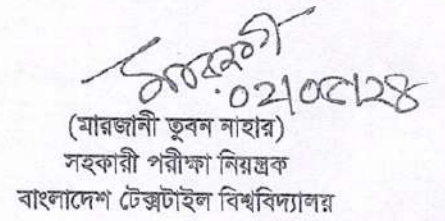 ০২/০৫/২৪
(মারজানী ভূবন নাহার)
সহকারী পরীক্ষা নিয়ন্ত্রক
বাংলাদেশ টেক্সটাইল বিশ্ববিদ্যালয়